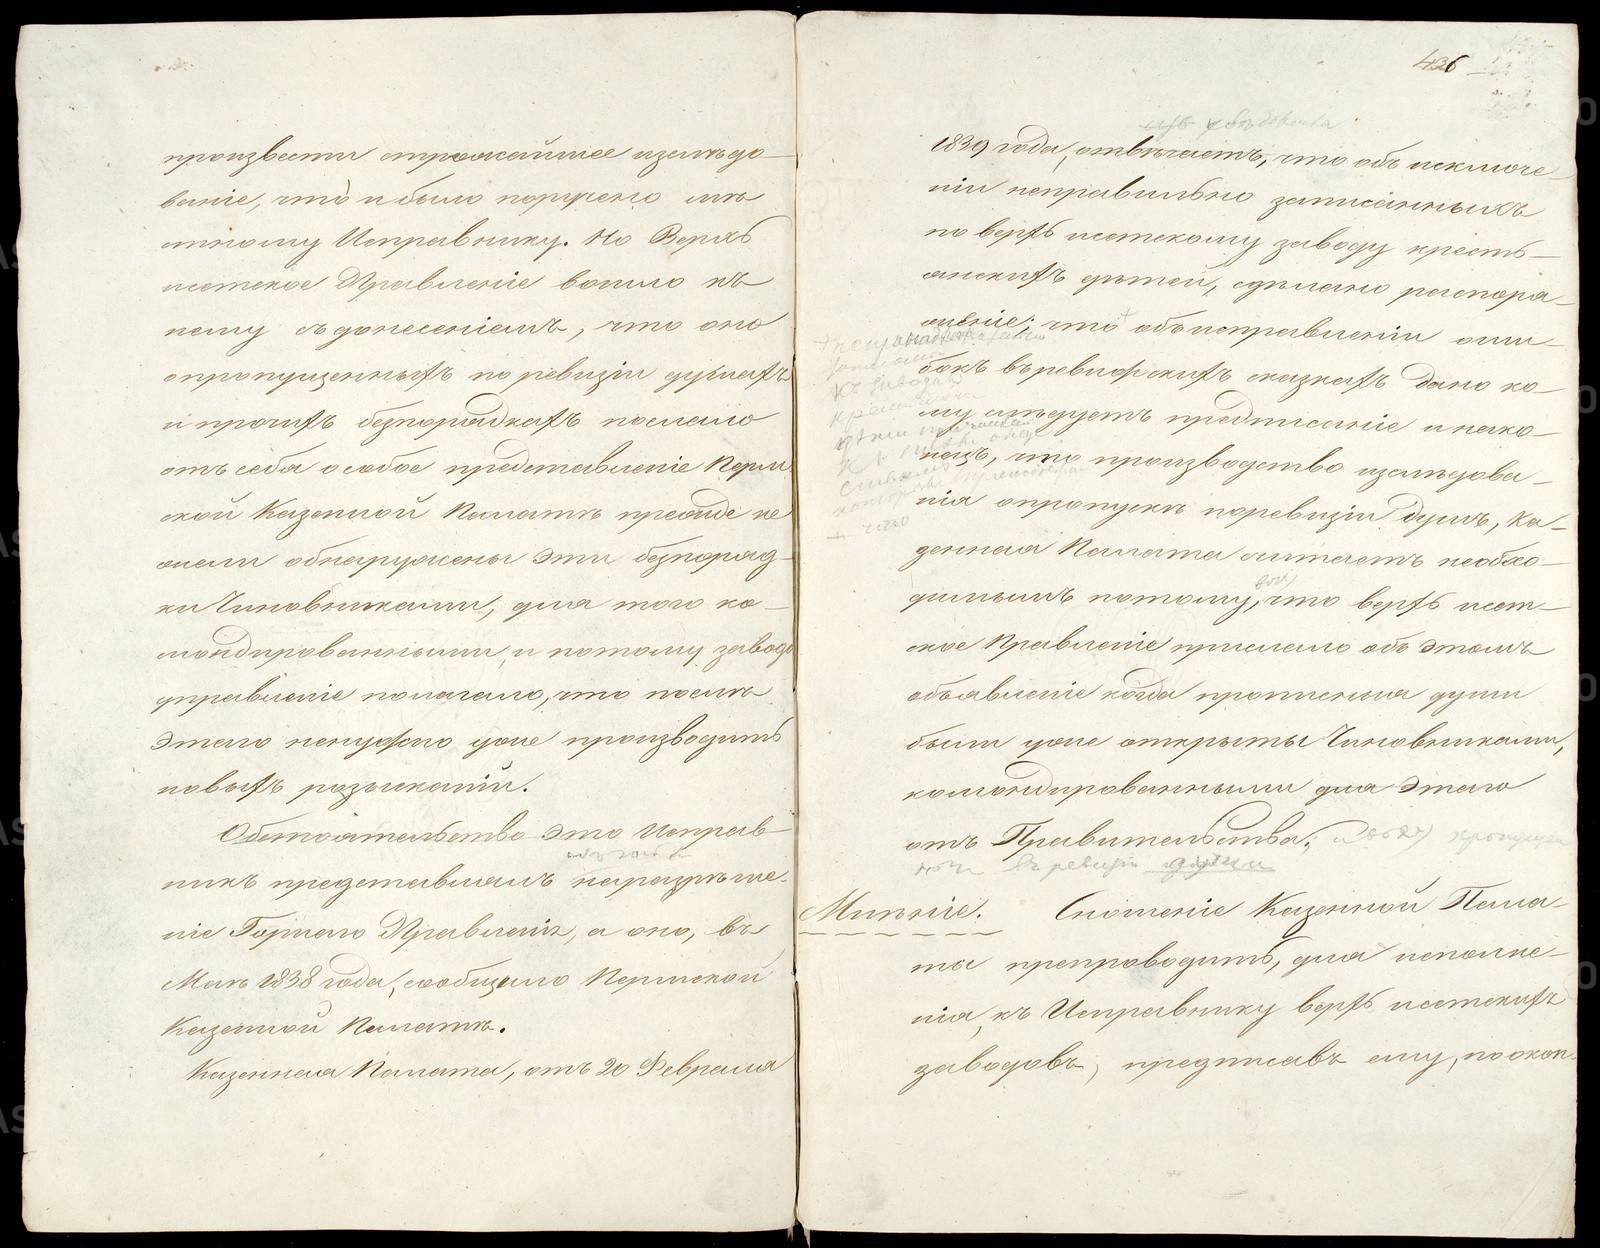 произвести строжайшее изслѣдо-
ваніе, что и было поручено мѣ
стному Исправнику. Но Верхъ
исетское Правленіе вошло къ
нему съ донесеніемъ, что оно
о пропущенныхъ по ревизіи душахъ
и прочихъ безпорядкахъ послало
отъ себя особое представленіе Перм
ской Казенной Палатѣ прежде не
жели обнаружены эти безпоряд-
ки Чиновниками, для того ко-
мандированными, и потому заводо
управленіе полагало, что послѣ
этого ненужно уже производить
новыхъ розысканій.
Обстоятельство это Исправ-
никъ представлялъ на разрѣше-
ніе Горнаго Правленія, а оно, въ
Маѣ 1838 года, сообщило Пермской
Казенной Палатѣ.
Казенная Палата, отъ 20 Февраля
436
1839 года, отвѣчаетъ, что объ исключе-
ніи неправильно записанныхъ
по верхъ исетскому заводу кресть-
янскихъ дѣтей, сдѣлано распоря-
женіе; что объ исправленіи оши-
бокъ въ ревизскихъ сказкахъ дано ко-
му слѣдуетъ предписаніе и нако-
нецъ, что производство изслѣдова-
нія о пропускѣ по ревизіи душъ, Ка-
зенная Палата считаетъ необхо-
димымъ потому, что верхъ исет-
ское Правленіе прислало объ этомъ
объявленіе когда прописныя души
были уже открыты Чиновниками,
командированными для этого
отъ Правительства;
въ ревизіи души
Мнѣніе. Сношеніе Казенной Пала-
ты препроводить, для исполне-
нія, къ Исправнику верхъ исетскихъ
заводовъ, предписавъ ему, по окон-